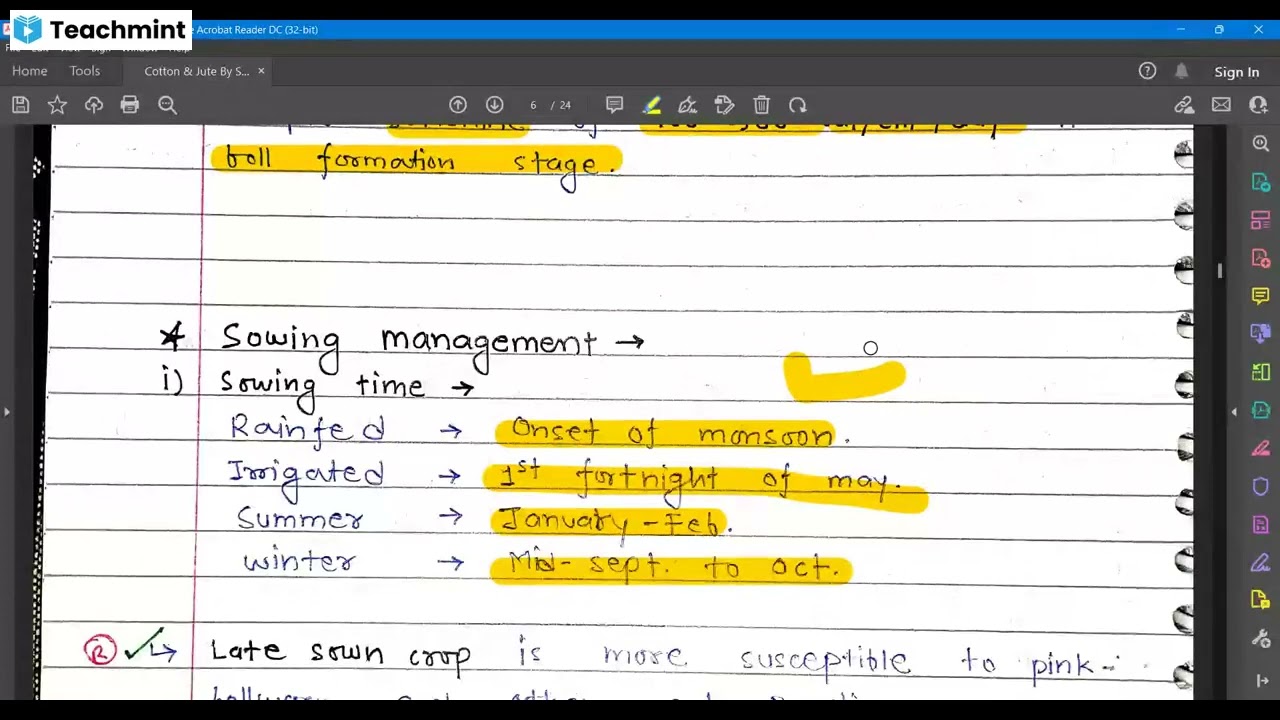 Teachmint
Acrobat Reader DC (32-bit)
Home Tools Cotton & Jute By S... × Sign In
6 / 24
boll formation stage.
* Sowing management →
i) Sowing time →
Rainfed → Onset of monsoon.
Irrigated → 1st fortnight of may.
Summer → January - Feb.
winter → Mid-sept. to oct.
R ✓↳ Late sown crop is more susceptible to pink-